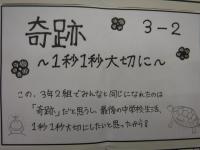 奇跡
3-2
~1秒1秒大切に~
この、3年2組でみんなと同じになれたのは
「奇跡」だと思うし、最後の中学校生活、
1秒1秒大切にしたいと思ったから!!